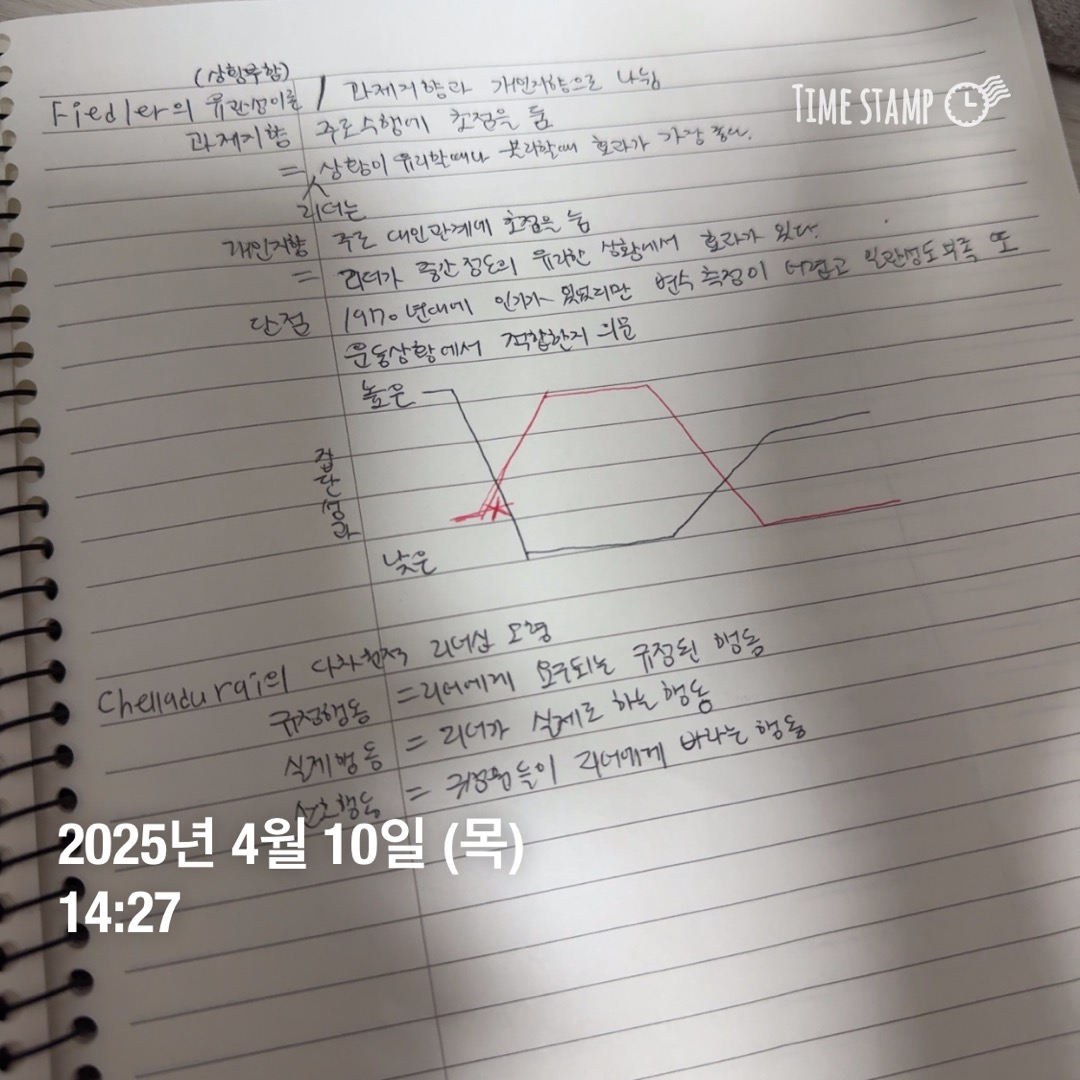 (상황부합)
Fiedler의 유관성이론 / 과제지향과 개인지향으로 나뉨
과제지향 주로수행에 초점을 둠
= 상황이 유리할때나 불리할때 효과가 가장 좋다.
리더는
개인지향 주로 대인관계에 초점을 둠
= 리더가 중간정도의 유리한 상황에서 효과가 있다.
단점 1970년대에 인기가 있었지만 변수 측정이 어렵고 일관성도 부족 또
운동상황에서 적합한지 의문
높은
집단성과
낮은
Chelladurai의 다차원적 리더십 모형
규정행동 = 리더에게 요구되는 규정된 행동
실제행동 = 리더가 실제로 하는 행동
선호행동 = 들이 리더에게 바라는 행동
TIME STAMP
2025년 4월 10일 (목)
14:27